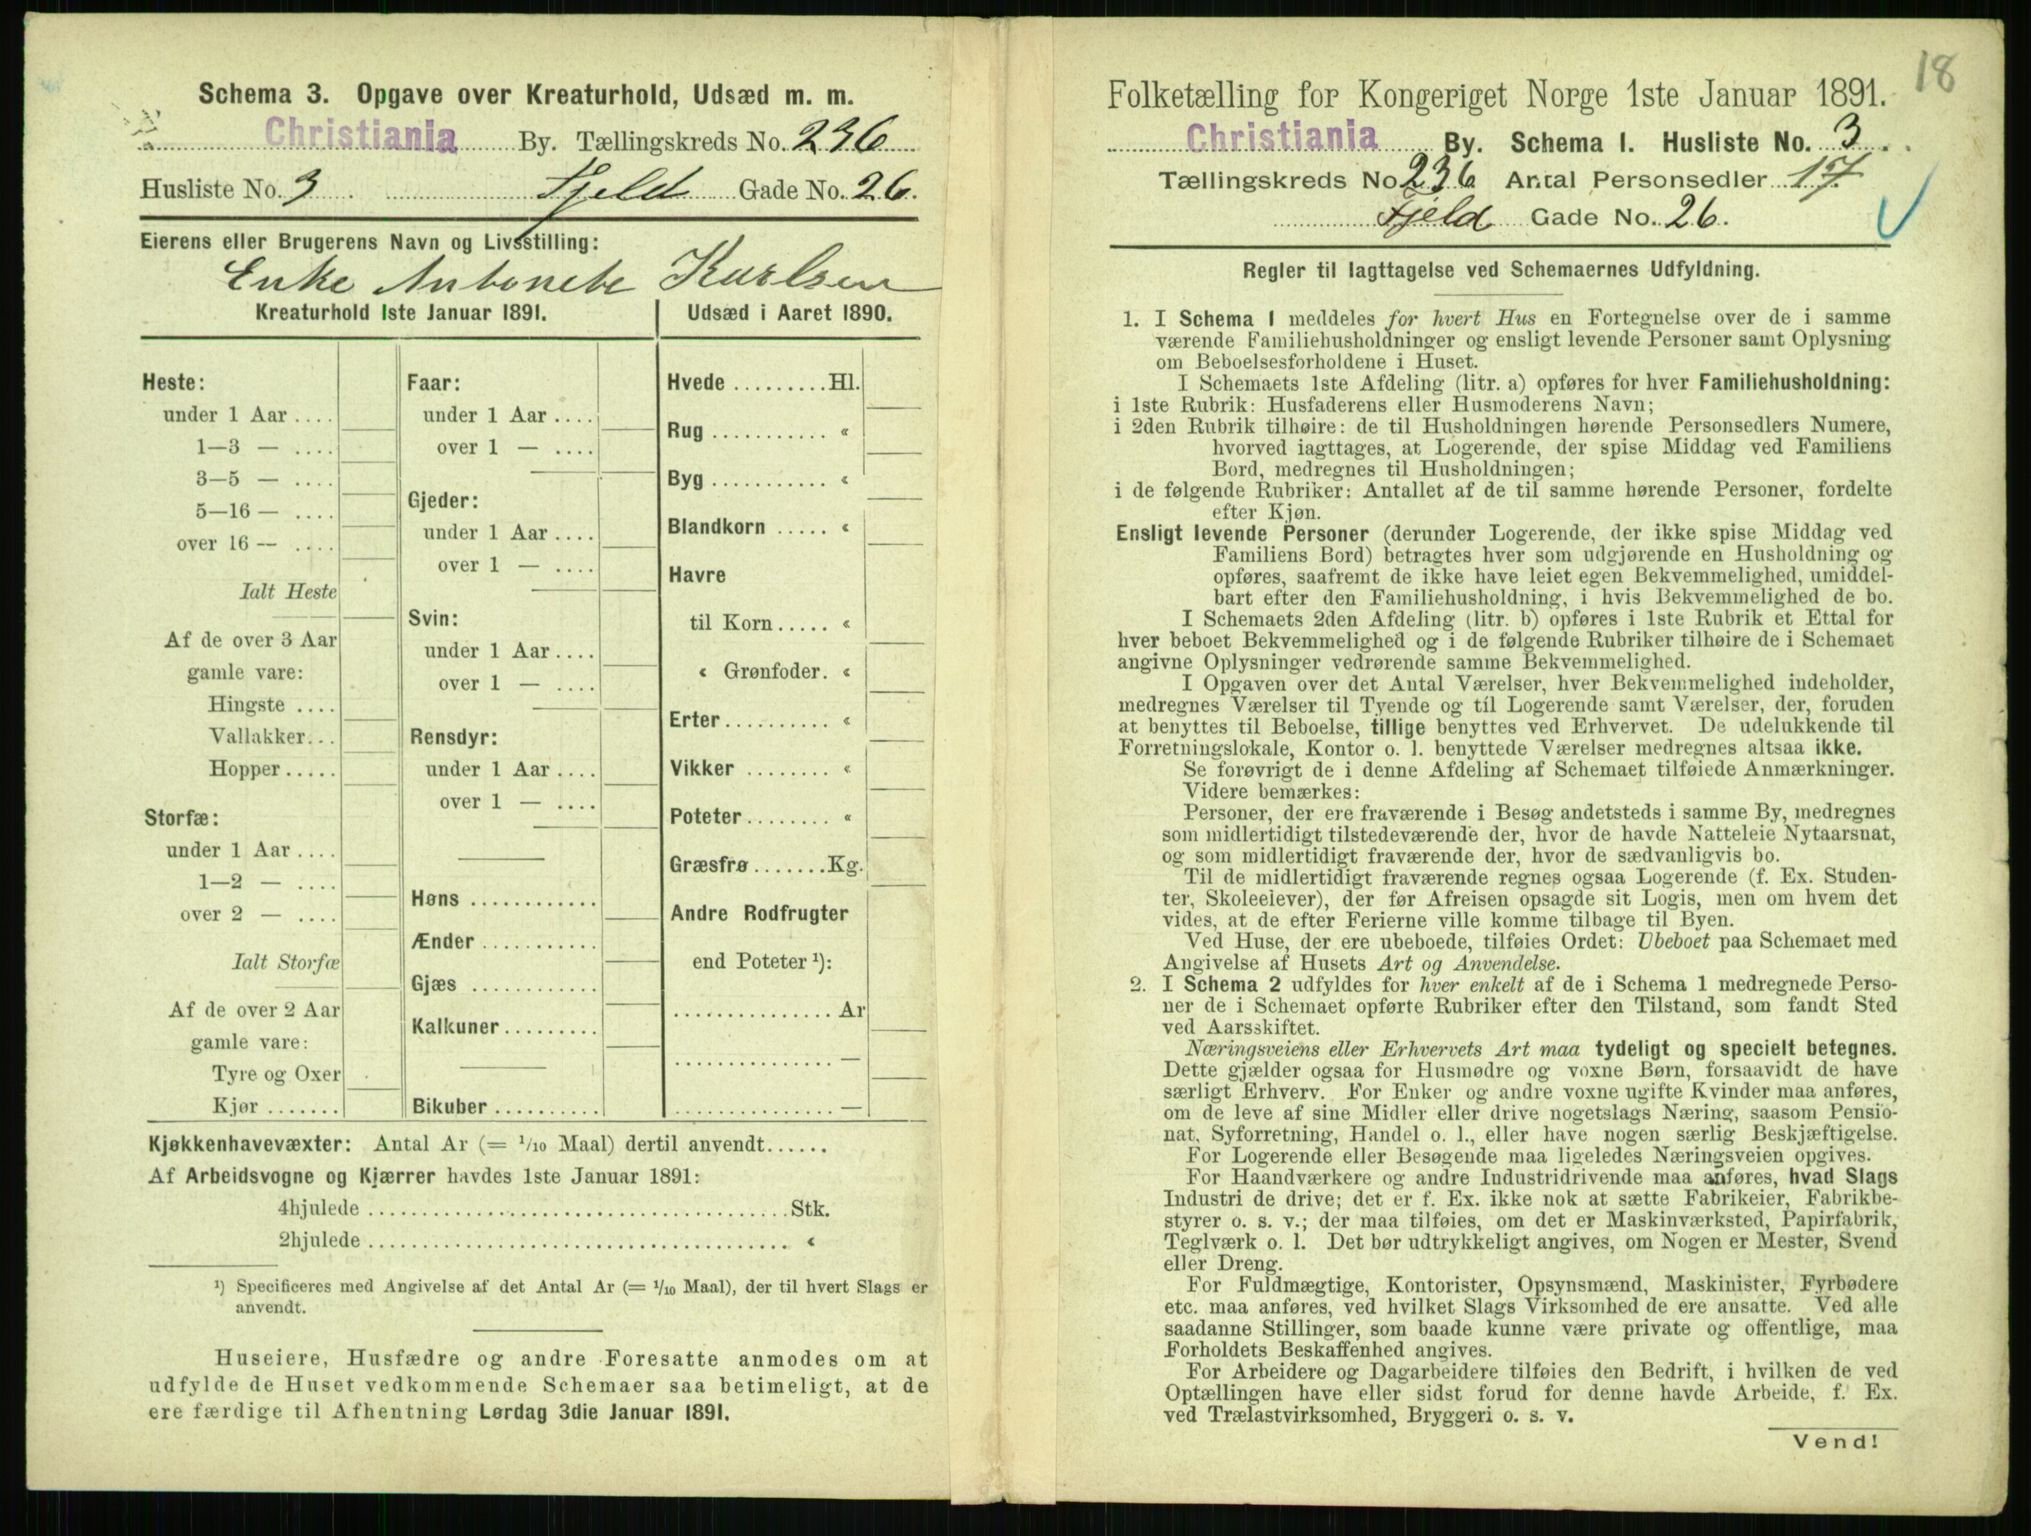 Schema 3. Opgave over Kreaturhold, Udsæd m. m.
Christiania By. Tællingskreds No. 236
Husliste No. 3 Fjeld Gade No. 26.
Eierens eller Brugerens Navn og Livsstilling:
Enke Antonete Karlsen
Kreaturhold 1ste Januar 1891.
Heste:
under 1 Aar ....
1—3 — ....
3—5 — ....
5—16 — ....
over 16 — ....
Ialt Heste
Af de over 3 Aar
gamle vare:
Hingste ....
Vallakker...
Hopper .....
Storfæ:
under 1 Aar ....
1—2 — ....
over 2 — ....
Ialt Storfæ
Af de over 2 Aar
gamle vare:
Tyre og Oxer
Kjør .......
Faar:
under 1 Aar ....
over 1 — ....
Gjeder:
under 1 Aar ....
over 1 — ....
Svin:
under 1 Aar ....
over 1 — ....
Rensdyr:
under 1 Aar ....
over 1 — ....
Høns ............
Ænder ...........
Gjæs ............
Kalkuner.........
Bikuber ..........
Udsæd i Aaret 1890.
Hvede .........Hl.
Rug ........... «
Byg ........... «
Blandkorn ..... «
Havre
til Korn ..... «
« Grønfoder. «
Erter ......... «
Vikker ........ «
Poteter ........ «
Græsfrø .......Kg.
Andre Rodfrugter
end Poteter ¹):
............... Ar
............... —
............... —
Kjøkkenhavevæxter: Antal Ar (= 1/10 Maal) dertil anvendt......
Af Arbeidsvogne og Kjærrer havdes 1ste Januar 1891:
4hjulede ........................................ Stk.
2hjulede ........................................ «
¹) Specificeres med Angivelse af det Antal Ar (= 1/10 Maal), der til hvert Slags er
anvendt.
Huseiere, Husfædre og andre Foresatte anmodes om at
udfylde de Huset vedkommende Schemaer saa betimeligt, at de
ere færdige til Afhentning Lørdag 3die Januar 1891.
18
Folketælling for Kongeriget Norge 1ste Januar 1891.
Christiania By. Schema I. Husliste No. 3.
Tællingskreds No 236 Antal Personsedler 17
Fjeld Gade No. 26.
Regler til Iagttagelse ved Schemaernes Udfyldning.
1. I Schema 1 meddeles for hvert Hus en Fortegnelse over de i samme
værende Familiehusholdninger og ensligt levende Personer samt Oplysning
om Beboelsesforholdene i Huset.
I Schemaets 1ste Afdeling (litr. a) opføres for hver Familiehusholdning:
i 1ste Rubrik: Husfaderens eller Husmoderens Navn;
i 2den Rubrik tilhøire: de til Husholdningen hørende Personsedlers Numere,
hvorved iagttages, at Logerende, der spise Middag ved Familiens
Bord, medregnes til Husholdningen;
i de følgende Rubriker: Antallet af de til samme hørende Personer, fordelte
efter Kjøn.
Ensligt levende Personer (derunder Logerende, der ikke spise Middag ved
Familiens Bord) betragtes hver som udgjørende en Husholdning og
opføres, saafremt de ikke have leiet egen Bekvemmelighed, umiddel-
bart efter den Familiehusholdning, i hvis Bekvemmelighed de bo.
I Schemaets 2den Afdeling (litr. b) opføres i 1ste Rubrik et Ettal for
hver beboet Bekvemmelighed og i de følgende Rubriker tilhøire de i Schemaet
angivne Oplysninger vedrørende samme Bekvemmelighed.
I Opgaven over det Antal Værelser, hver Bekvemmelighed indeholder,
medregnes Værelser til Tyende og til Logerende samt Værelser, der, foruden
at benyttes til Beboelse, tillige benyttes ved Erhvervet. De udelukkende til
Forretningslokale, Kontor o. l. benyttede Værelser medregnes altsaa ikke.
Se forøvrigt de i denne Afdeling af Schemaet tilføiede Anmærkninger.
Videre bemærkes:
Personer, der ere fraværende i Besøg andetsteds i samme By, medregnes
som midlertidigt tilstedeværende der, hvor de havde Natteleie Nytaarsnat,
og som midlertidigt fraværende der, hvor de sædvanligvis bo.
Til de midlertidigt fraværende regnes ogsaa Logerende (f. Ex. Studen-
ter, Skoleelever), der før Afreisen opsagde sit Logis, men om hvem det
vides, at de efter Ferierne ville komme tilbage til Byen.
Ved Huse, der ere ubeboede, tilføies Ordet: Ubeboet paa Schemaet med
Angivelse af Husets Art og Anvendelse.
2. I Schema 2 udfyldes for hver enkelt af de i Schema 1 medregnede Perso-
ner de i Schemaet opførte Rubriker efter den Tilstand, som fandt Sted
ved Aarsskiftet.
Næringsveiens eller Erhvervets Art maa tydeligt og specielt betegnes.
Dette gjælder ogsaa for Husmødre og voxne Børn, forsaavidt de have
særligt Erhverv. For Enker og andre voxne ugifte Kvinder maa anføres,
om de leve af sine Midler eller drive nogetslags Næring, saasom Pensio-
nat, Syforretning, Handel o. l., eller have nogen særlig Beskjæftigelse.
For Logerende eller Besøgende maa ligeledes Næringsveien opgives.
For Haandværkere og andre Industridrivende maa anføres, hvad Slags
Industri de drive; det er f. Ex. ikke nok at sætte Fabrikeier, Fabrikbe-
styrer o. s. v.; der maa tilføies, om det er Maskinværksted, Papirfabrik,
Teglværk o. l. Det bør udtrykkeligt angives, om Nogen er Mester, Svend
eller Dreng.
For Fuldmægtige, Kontorister, Opsynsmænd, Maskinister, Fyrbødere
etc. maa anføres, ved hvilket Slags Virksomhed de ere ansatte. Ved alle
saadanne Stillinger, som baade kunne være private og offentlige, maa
Forholdets Beskaffenhed angives.
For Arbeidere og Dagarbeidere tilføies den Bedrift, i hvilken de ved
Optællingen have eller sidst forud for denne havde Arbeide, f. Ex.
ved Trælastvirksomhed, Bryggeri o. s. v.
Vend!